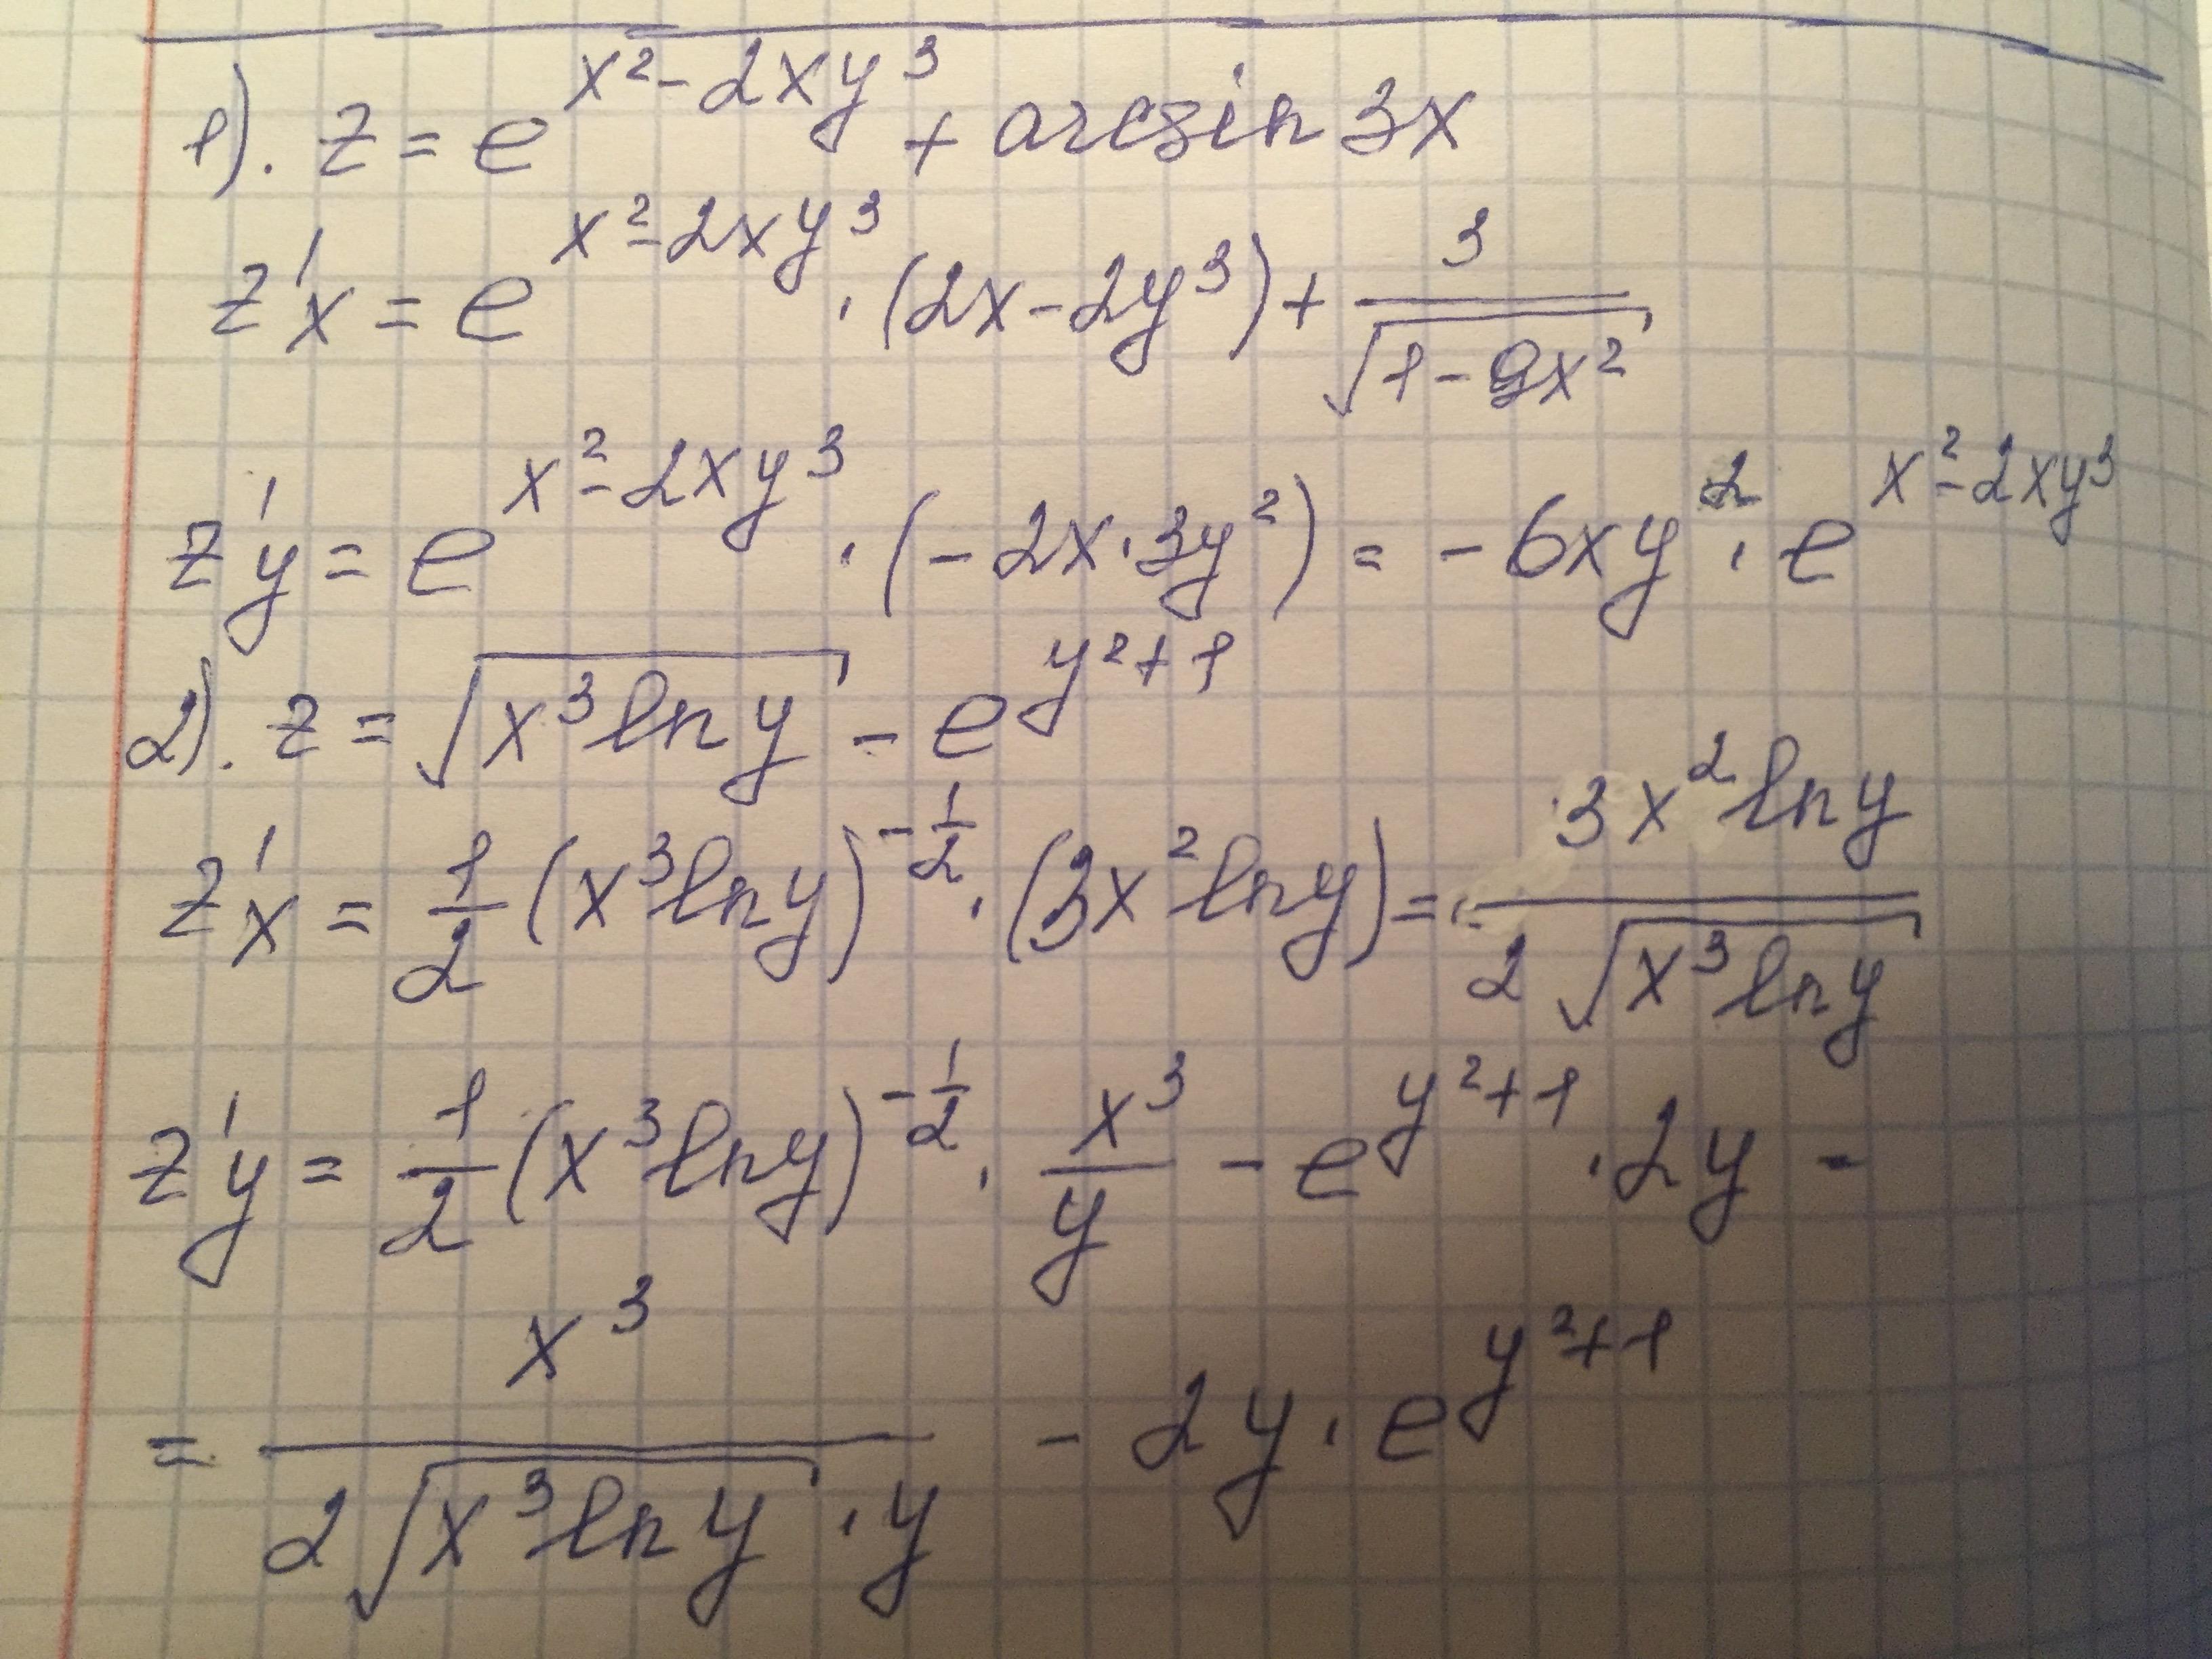 1). z = e^(x² - 2xy³) + arcsin 3x
z'x = e^(x² - 2xy³) · (2x - 2y³) + 3/√(1 - 9x²)
z'y = e^(x² - 2xy³) · (-2x · 3y²) = -6xy² · e^(x² - 2xy³)
2). z = √(x³ ln y) - e^(y² + 1)
z'x = 1/2 (x³ ln y)^(-1/2) · (3x² ln y) = 3x² ln y / (2√(x³ ln y))
z'y = 1/2 (x³ ln y)^(-1/2) · x³/y - e^(y² + 1) · 2y -
= x³ / (2√(x³ ln y) · y) - 2y · e^(y² + 1)